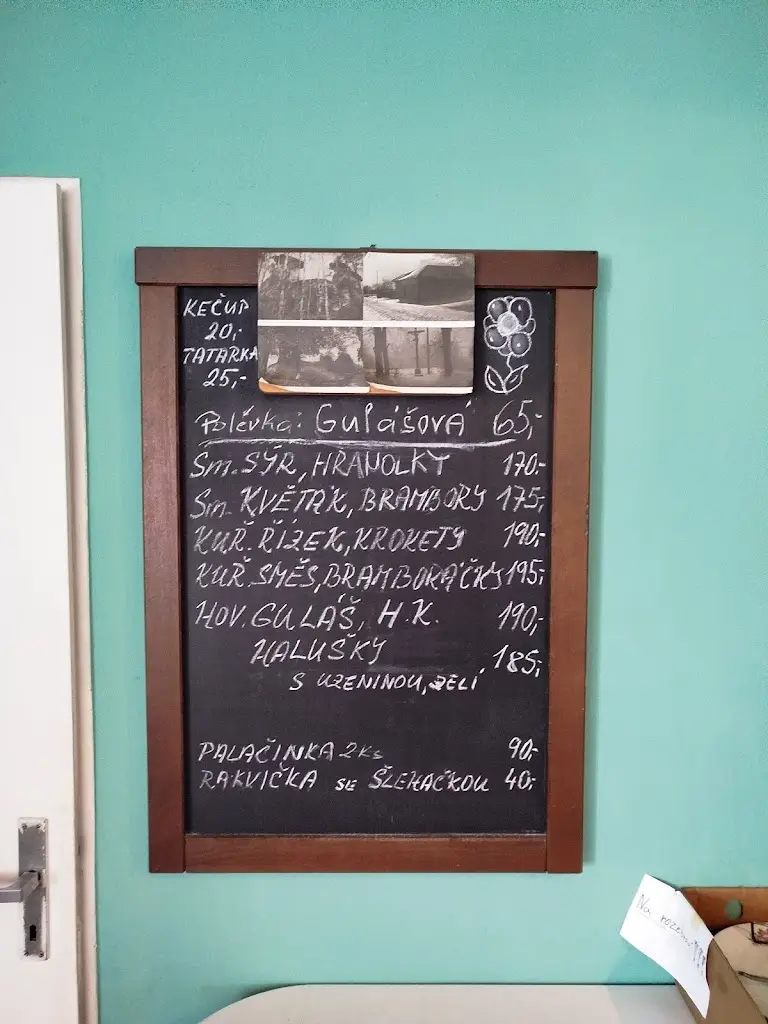 KEČUP
20,-
TATARKA
25,-
Polévka: Gulášová 65,-
Sm. SÝR, HRANOLKY 170,-
Sm. KVĚTÁK, BRAMBORY 175,-
KUŘ. ŘÍZEK, KROKETY 190,-
KUŘ. SMĚS, BRAMBORÁČKY 195,-
HOV. GULÁŠ, H.K. 190,-
HALUŠKY 185,-
S UZENINOU, ZELÍ
PALAČINKA 2ks 90,-
RAKVIČKA SE ŠLEHAČKOU 40,-
Na